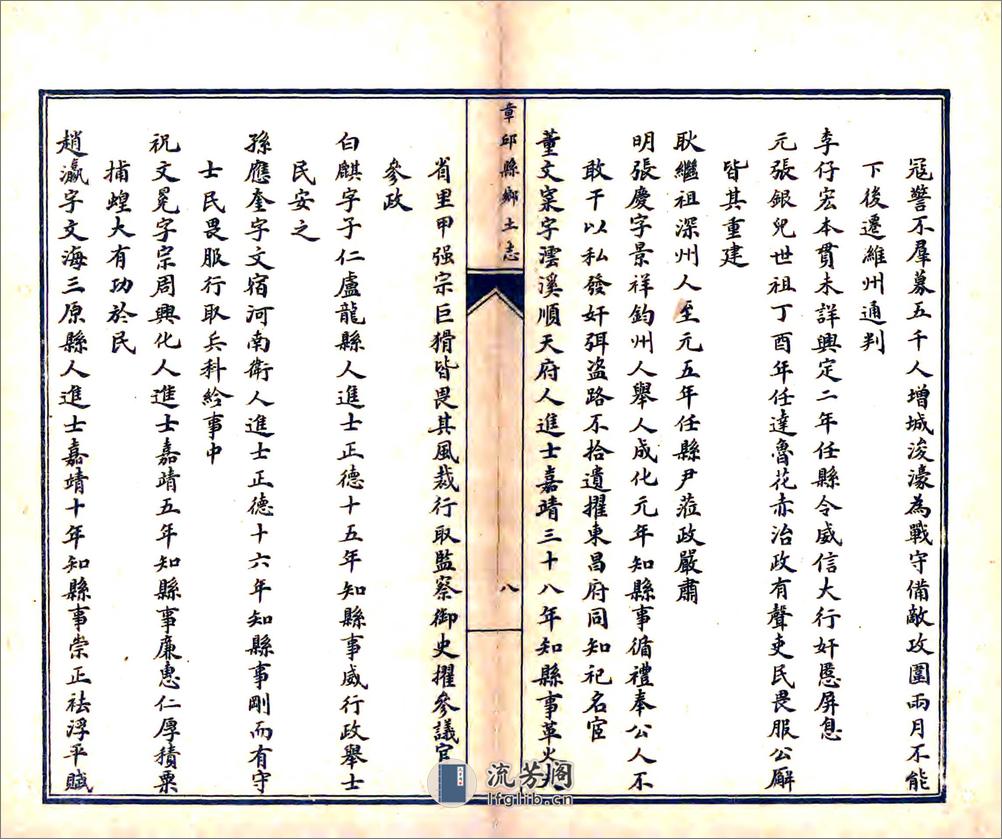 寇警不羣募五千人增城浚濠為戰守備敵攻圍兩月不能
下後遷維州通判
李仔宏本貫未詳興定二年任縣令威信大行奸慝屏息
元張銀兒世祖丁酉年任達魯花赤治政有聲吏民畏服公廨
皆其重建
耿繼祖深州人至元五年任縣尹蒞政嚴肅
明張慶字景祥鈞州人舉人成化元年知縣事循禮奉公人不
敢干以私發奸弭盜路不拾遺擢東昌府同知祀名宦
董文寀字澐溪順天府人進士嘉靖三十八年知縣事革火
章邱縣鄉土志
八
省里甲强宗巨猾皆畏其風裁行取監察御史擢參議官
參政
白麒字子仁盧龍縣人進士正德十五年知縣事威行政舉士
民安之
孫應奎字文宿河南衛人進士正德十六年知縣事剛而有守
士民畏服行取兵科給事中
祝文冕字宗周興化人進士嘉靖五年知縣事廉惠仁厚積粟
捕蝗大有功於民
趙瀛字文海三原縣人進士嘉靖十年知縣事崇正祛浮平賦
流芳阁
lfglib.cn